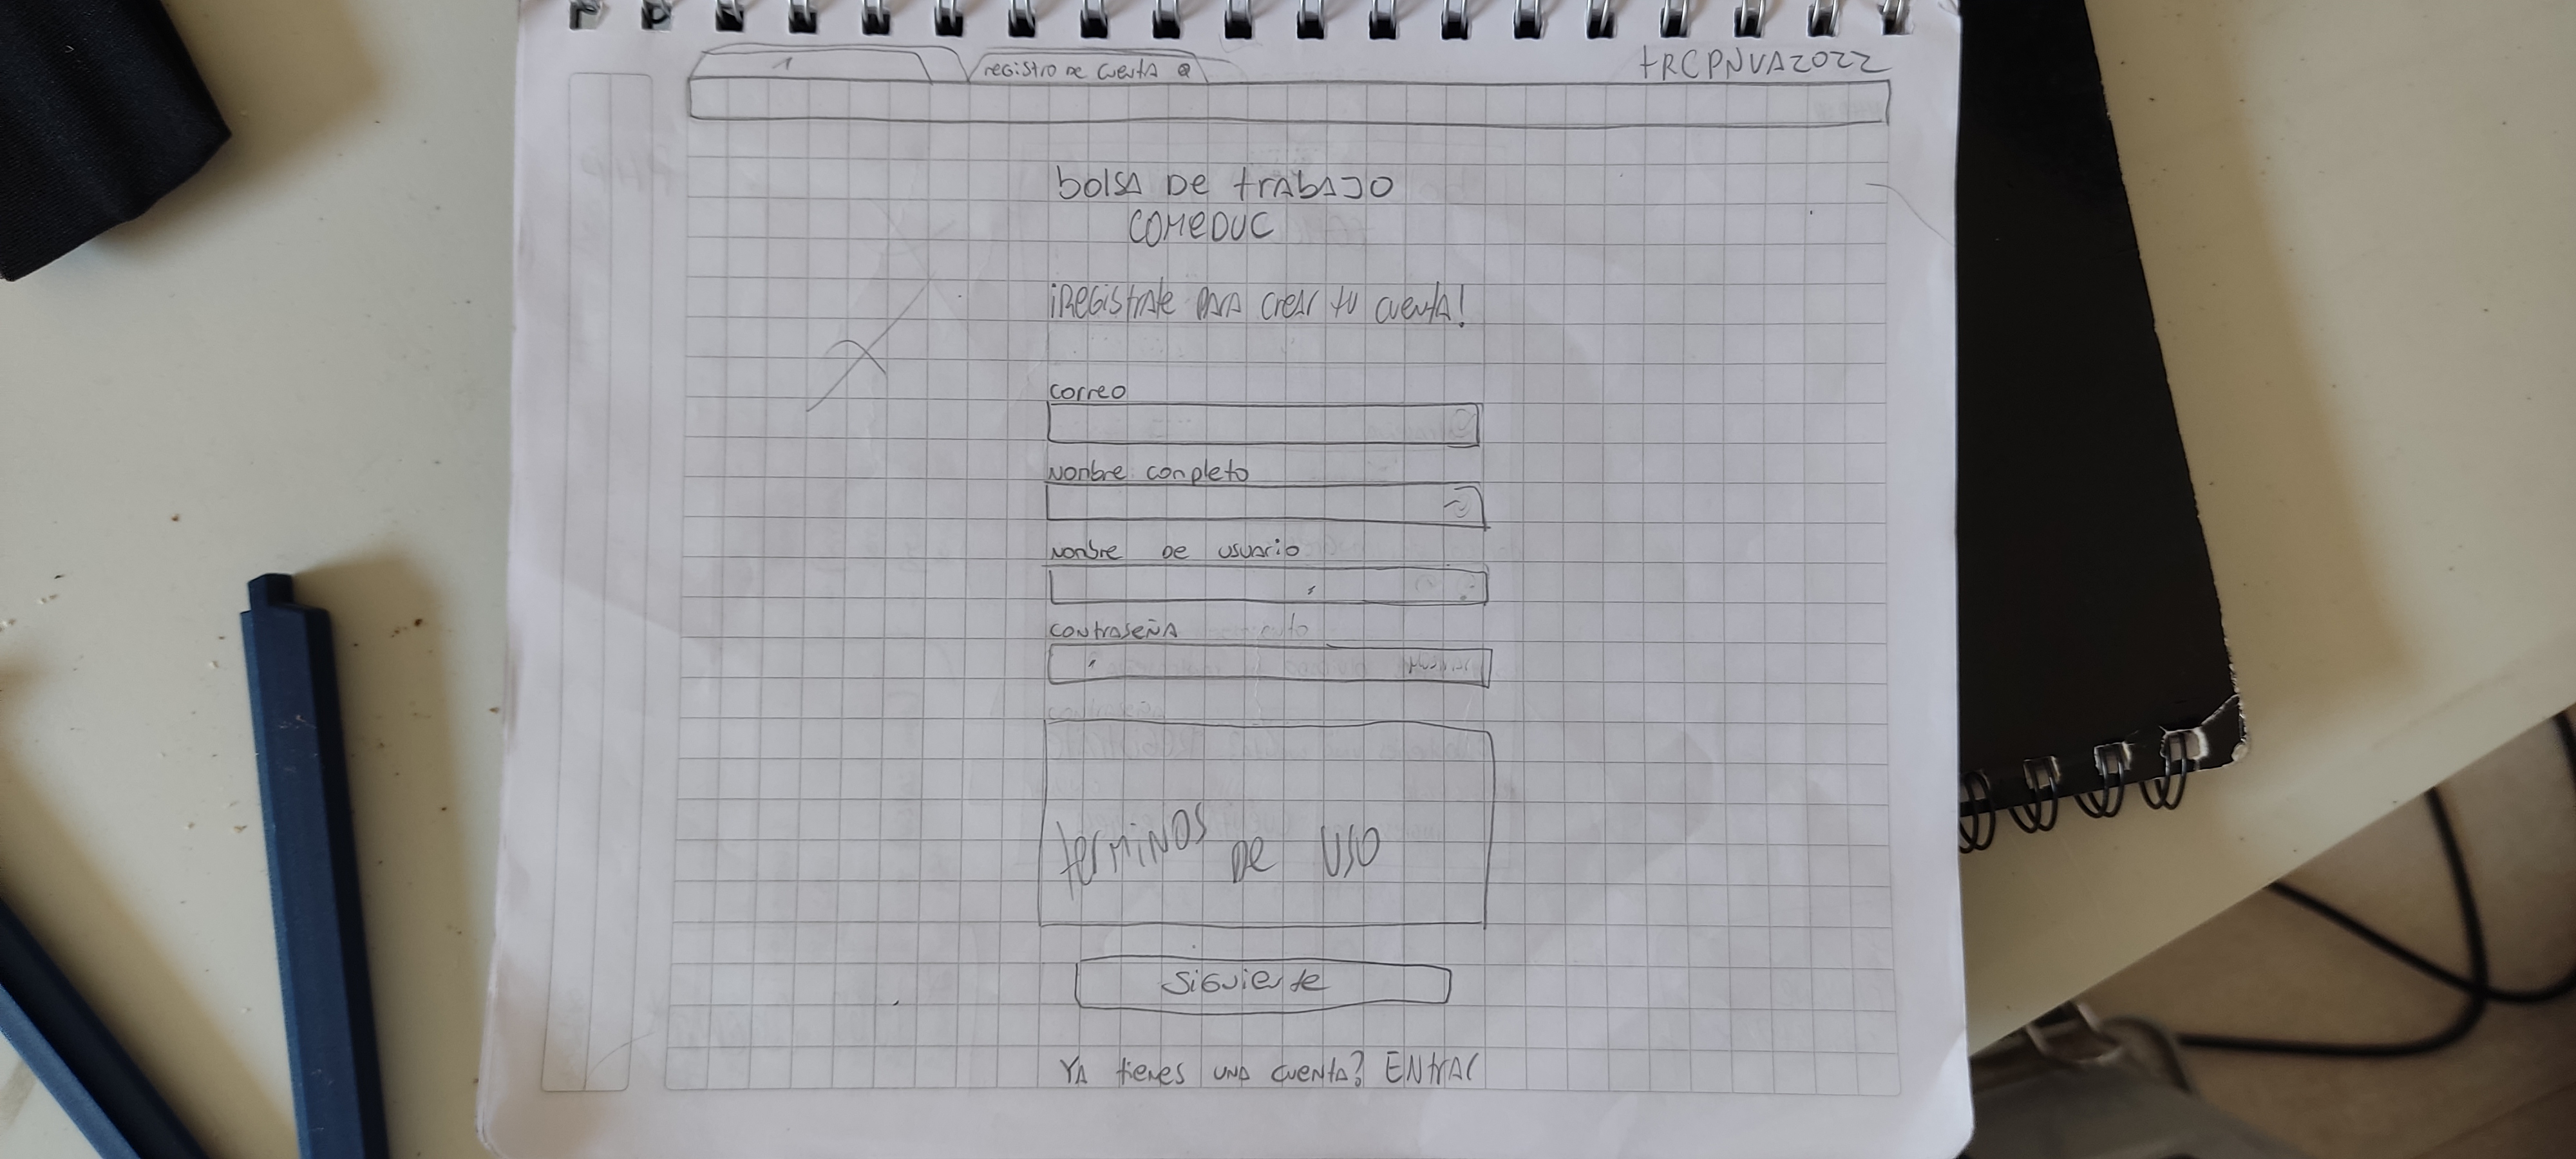 1
registro de cuenta
tRCPNVA2022
bolsa De trabajo
COMEDUC
¡Registrate para crear tu cuenta!
correo
Nonbre conpleto
Nonbre de usuario
contraseña
terminos de uso
Siguiente
Ya tienes una cuenta? ENtrar